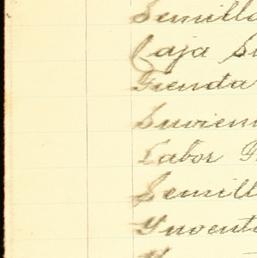 Semilla
Caja Su
Tienda
Invien
Labor
Semill
Ynvent